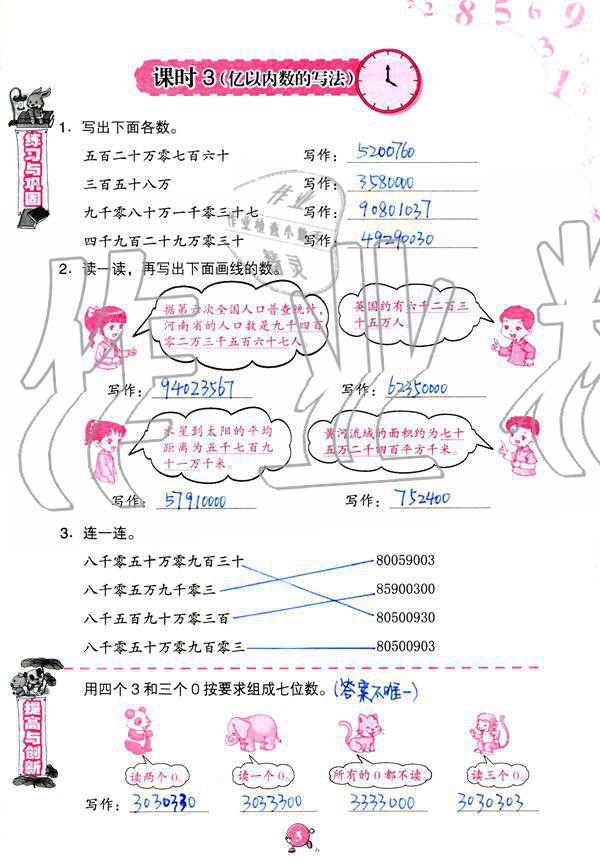 2 2 8 5 6 9
3
1
课时 3（亿以内数的写法）
练习与巩固
1. 写出下面各数。
五百二十万零七百六十 写作：5200760
三百五十八万 写作：3580000
九千零八十万一千零三十七 写作：90801037
四千九百二十九万零三十 写作：49290030
2. 读一读，再写出下面画线的数。
据第六次全国人口普查统计，
河南省的人口数是九千四百
零二万三千五百六十七人。
写作：94023567
英国约有六千二百三
十五万人。
写作：62350000
水星到太阳的平均
距离为五千七百九
十一万千米。
写作：57910000
黄河流域的面积约为七十
五万二千四百平方千米。
写作：752400
3. 连一连。
八千零五十万零九百三十 80059003
八千零五万九千零三 85900300
八千五百九十万零三百 80500930
八千零五十万零九百零三 80500903
提高与创新
用四个 3 和三个 0 按要求组成七位数。（答案不唯一）
读两个 0。 读一个 0。 所有的 0 都不读。 读三个 0。
写作：3030330 3033300 3333000 3030303
3
作业
作业检查小助手
精灵